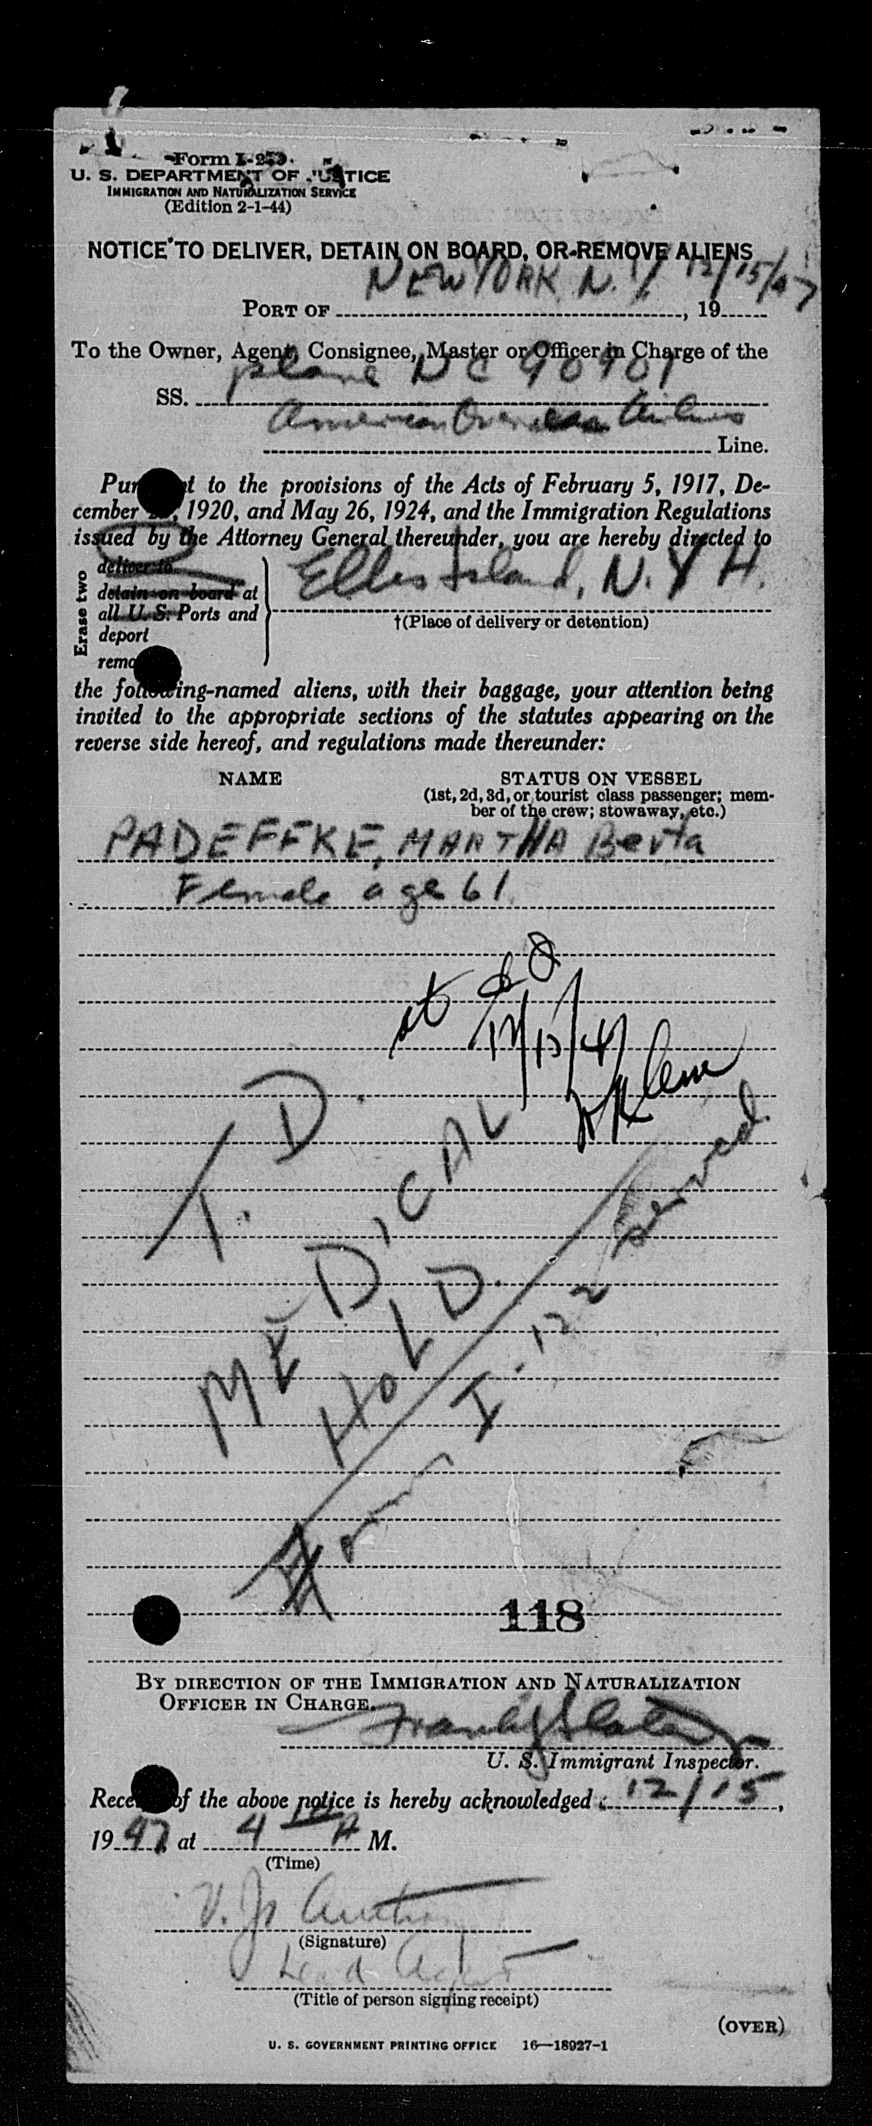 Form I-259
U. S. DEPARTMENT OF JUSTICE
IMMIGRATION AND NATURALIZATION SERVICE
(Edition 2-1-44)
NOTICE TO DELIVER, DETAIN ON BOARD, OR REMOVE ALIENS
NEW YORK N.Y. 12/15/47
PORT OF , 19
To the Owner, Agent, Consignee, Master or Officer in Charge of the
SS. plane NC 90901
American Overseas Airlines Line.
Pursuant to the provisions of the Acts of February 5, 1917, De-
cember 26, 1920, and May 26, 1924, and the Immigration Regulations
issued by the Attorney General thereunder, you are hereby directed to
Erase two
deliver to
detain on board at
all U. S. Ports and
deport
remove
Ellis Island, N.Y.H.
†(Place of delivery or detention)
the following-named aliens, with their baggage, your attention being
invited to the appropriate sections of the statutes appearing on the
reverse side hereof, and regulations made thereunder:
NAME STATUS ON VESSEL
(1st, 2d, 3d, or tourist class passenger; mem-
ber of the crew; stowaway, etc.)
PADEFFKE, MARTHA Berta
Female age 61
12/15/47
T. D.
MEDICAL
HOLD.
Form I-122 served.
118
BY DIRECTION OF THE IMMIGRATION AND NATURALIZATION
OFFICER IN CHARGE.
U. S. Immigrant Inspector.
Receipt of the above notice is hereby acknowledged 12/15,
1947 at 4 A M.
(Time)
V. J.
(Signature)
Lead Agent
(Title of person signing receipt)
(OVER)
U. S. GOVERNMENT PRINTING OFFICE 16—18927-1